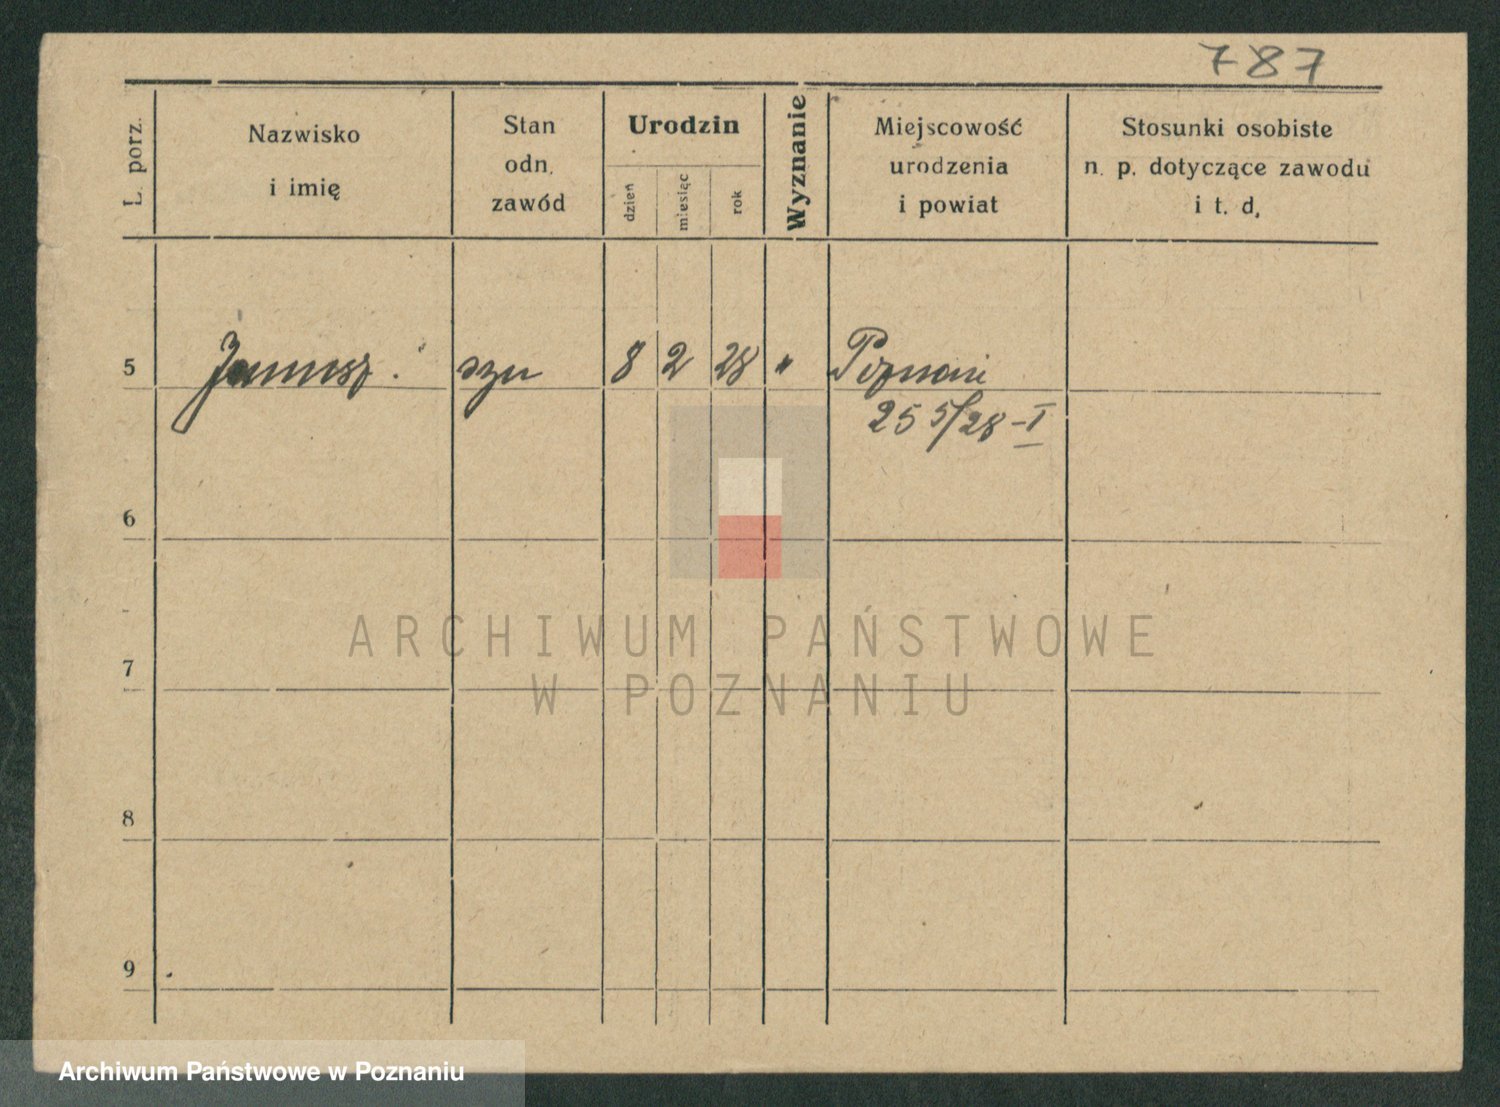 787
L. porz.
Nazwisko
i imię
Stan
odn.
zawód
Urodzin
dzień
miesiąc
rok
Wyznanie
Miejscowość
urodzenia
i powiat
Stosunki osobiste
n. p. dotyczące zawodu
i t. d.
5 Janusz. syn 8 2 28 " Poznań
25 5/28 - I
6
7
8
9
ARCHIWUM PAŃSTWOWE
W POZNANIU
Archiwum Państwowe w Poznaniu